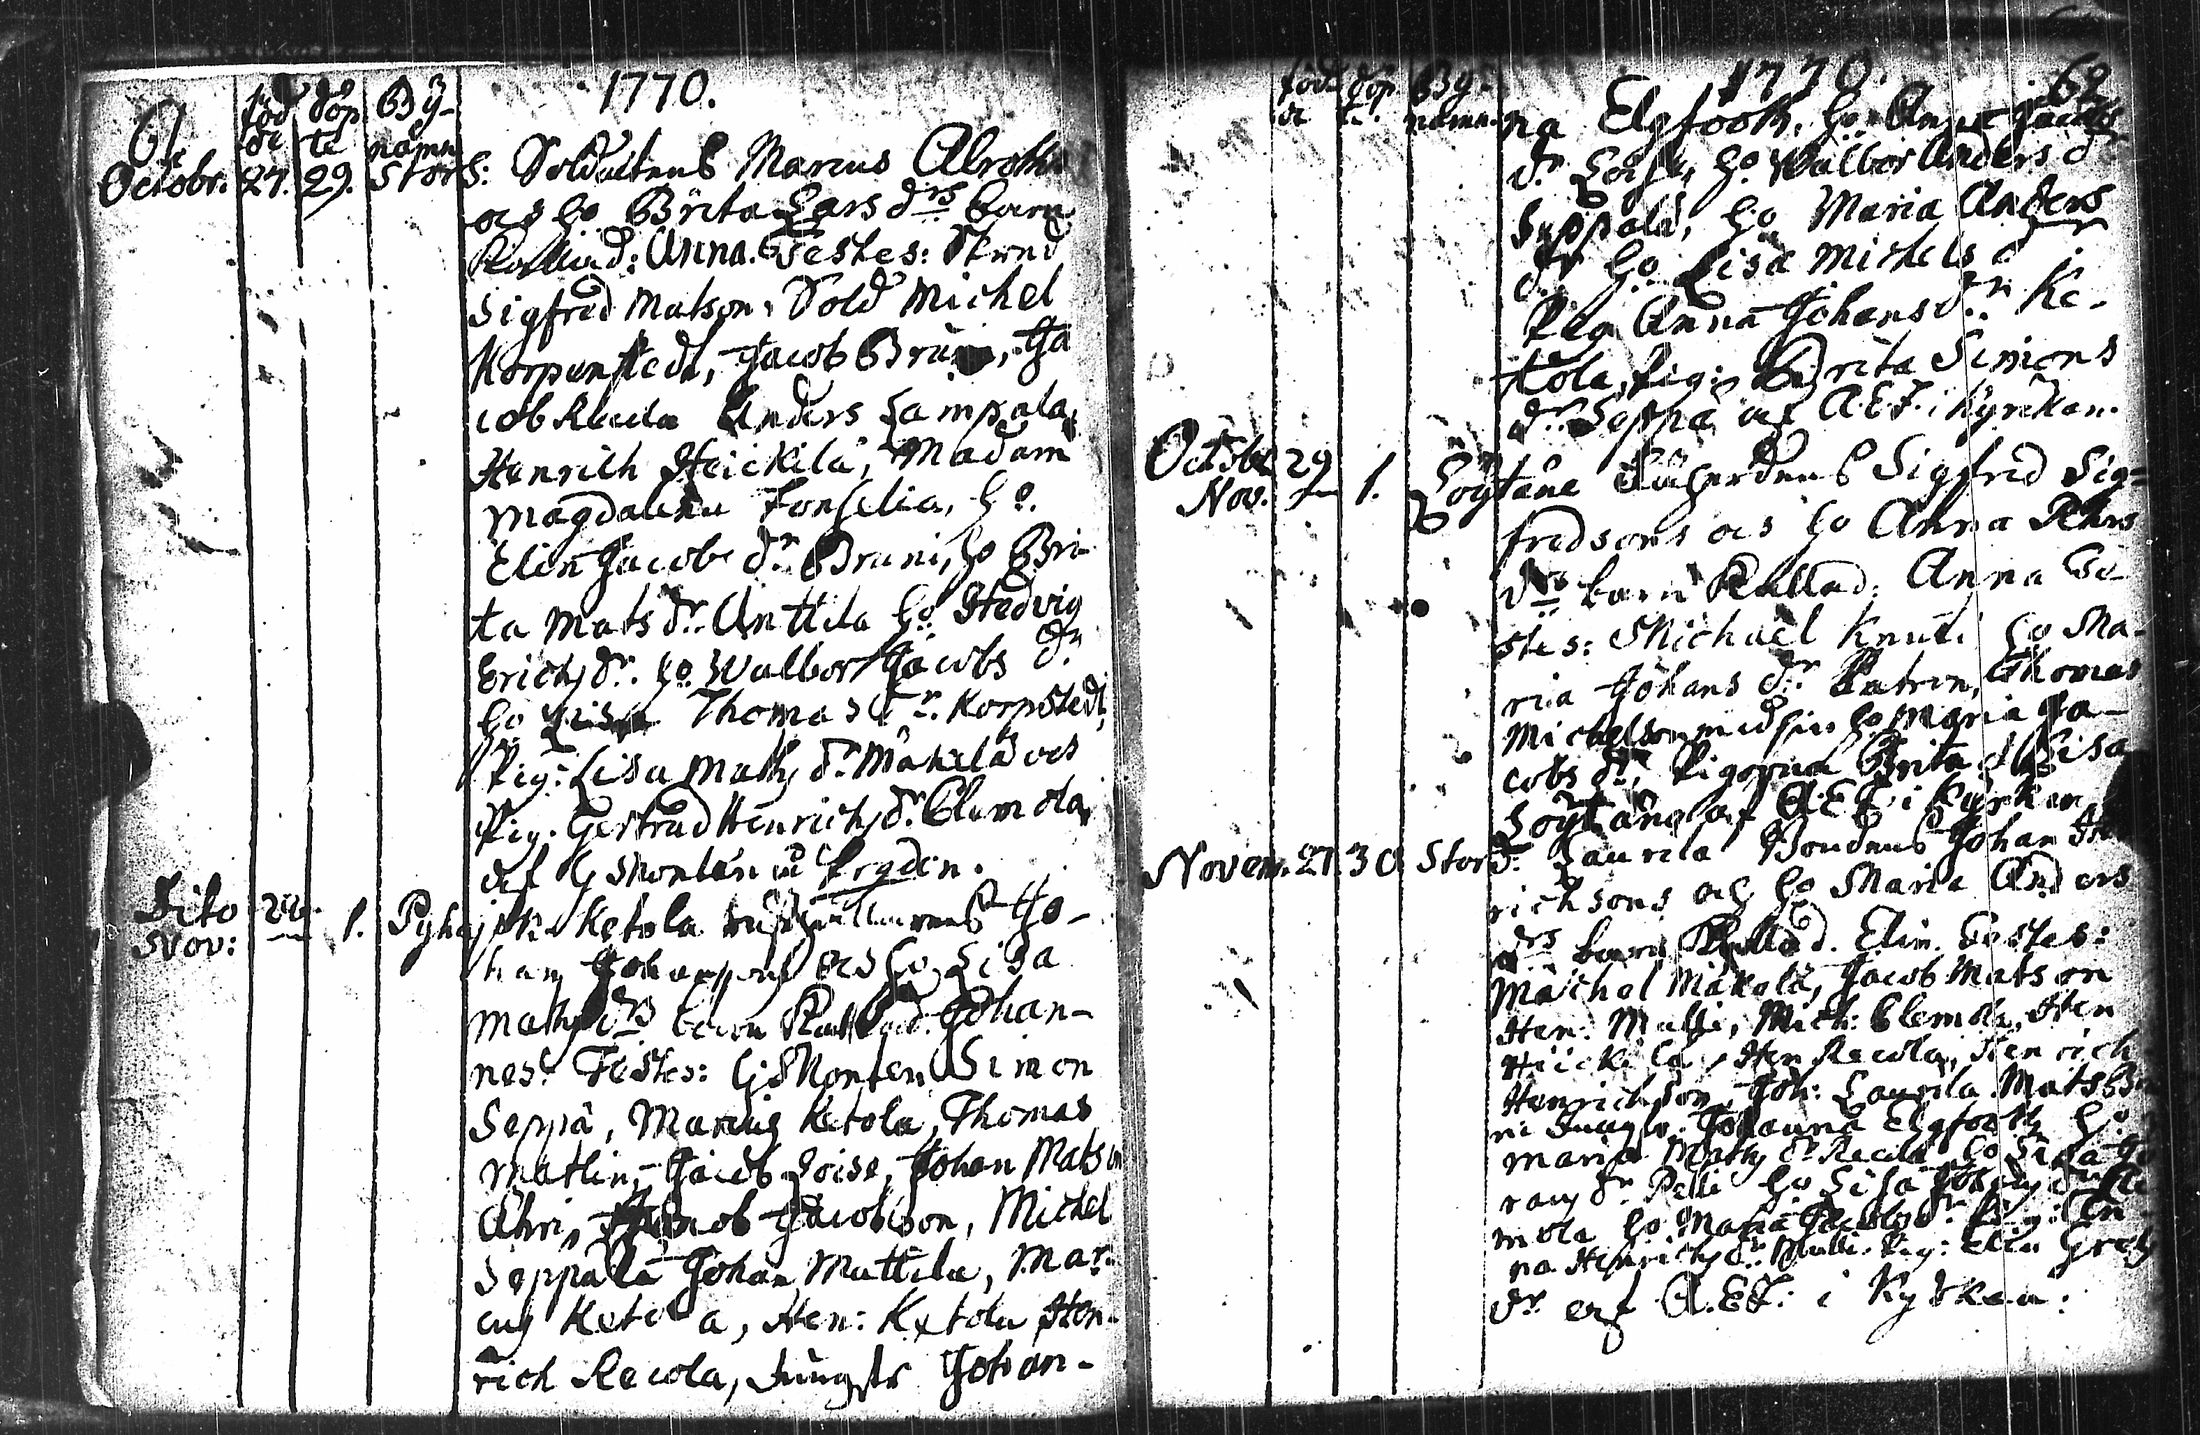 1770.
A.
föd
de
döp
te
By-
namn
Octobr. 27. 29. Stor S: Soldatens Marcus Abroths
och ho Brita Lars drs barn
Kallad: Anna. Testes:
Sigfred Matson, Sold Michel
Korpenstedt, Jacob Bruni, Ja
cob Recila Anders Lampala,
Henrich Heickilä, Madam
Magdalena Forselia, ho.
Elin Jacobs dr Bruni, ho Bri
ta Mats dr. Anttila ho Hedvig
Erichs dr. ho Walbor Jacobs dr
ho Lisa Thomas dr. Korpstedt,
Pig: Lisa Mats dr Mäkelä och
Pig. Gertrud Henrichs dr. Clemola,
af G Monten
Dito 28 Nov: 1. Pyhajoki Ketola Jo-
han Johansons och ho Lisa
Mats drs barn Kallad. Johan-
nes. Testes: G: Monten Simon
Seppä, Marcus Ketola, Thomas
Matlin, Jacob Loise, Johan Matson
Ahri, Jacob Jacobson, Michel
Seppälä Johan Mattila, Mar-
cus Ketola, Hen: Ketola Hen-
rich Recola, Jungfr Johan-
1770. 62
föd
de
döp
te.
By-
namn.
na Elgfooth, ho Anna Jacobs
dr Loise, ho Walbor Anders dr
Seppälä, ho Maria Anders
dr ho Lisa Michels d
Pig Anna Johans dr Ke-
tola, Pig: Brita Simons
dr Seppä af A.E.F. i Kyrckan.
Octobr 29 Nov. 1. Löytäne Sigfred Sig=
fredsons och ho Anna Pehrs
drs barn Kallad: Anna Te-
stes: Michael Knuti ho Ma-
ria Johans dr Katrin, Thomas
Michelson med sin ho Maria Ja-
cobs dr, Pigorna Brita o Lisa
Löytäne af A.E.F. i Kyrkan.
Novem. 27. 30 Stor S: Laurila Bondens Johan Hen
richsons och ho Maria Anders
drs barn Kallad. Elin. Testes:
Michel Mäkelä, Jacob Matson
Hen: Malli, Mich: Clemola, Hen
Heickilä, Hen Recola, Henrich
Henrichson, Joh: Laurila Mats Bru
ni Jungfr. Johanna Elgfooth ho
Maria Mats dr Recila ho Lisa Jo
rans dr Pelli ho Lisa Johans dr Cle
mola ho Maria Jacobs dr Pig: An-
na Henrichs dr Malli. Pig: Elin Grels
dr. af A.E.F. i Kyrkan.